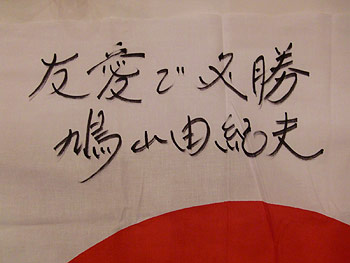 友愛で必勝
鳩山由紀夫